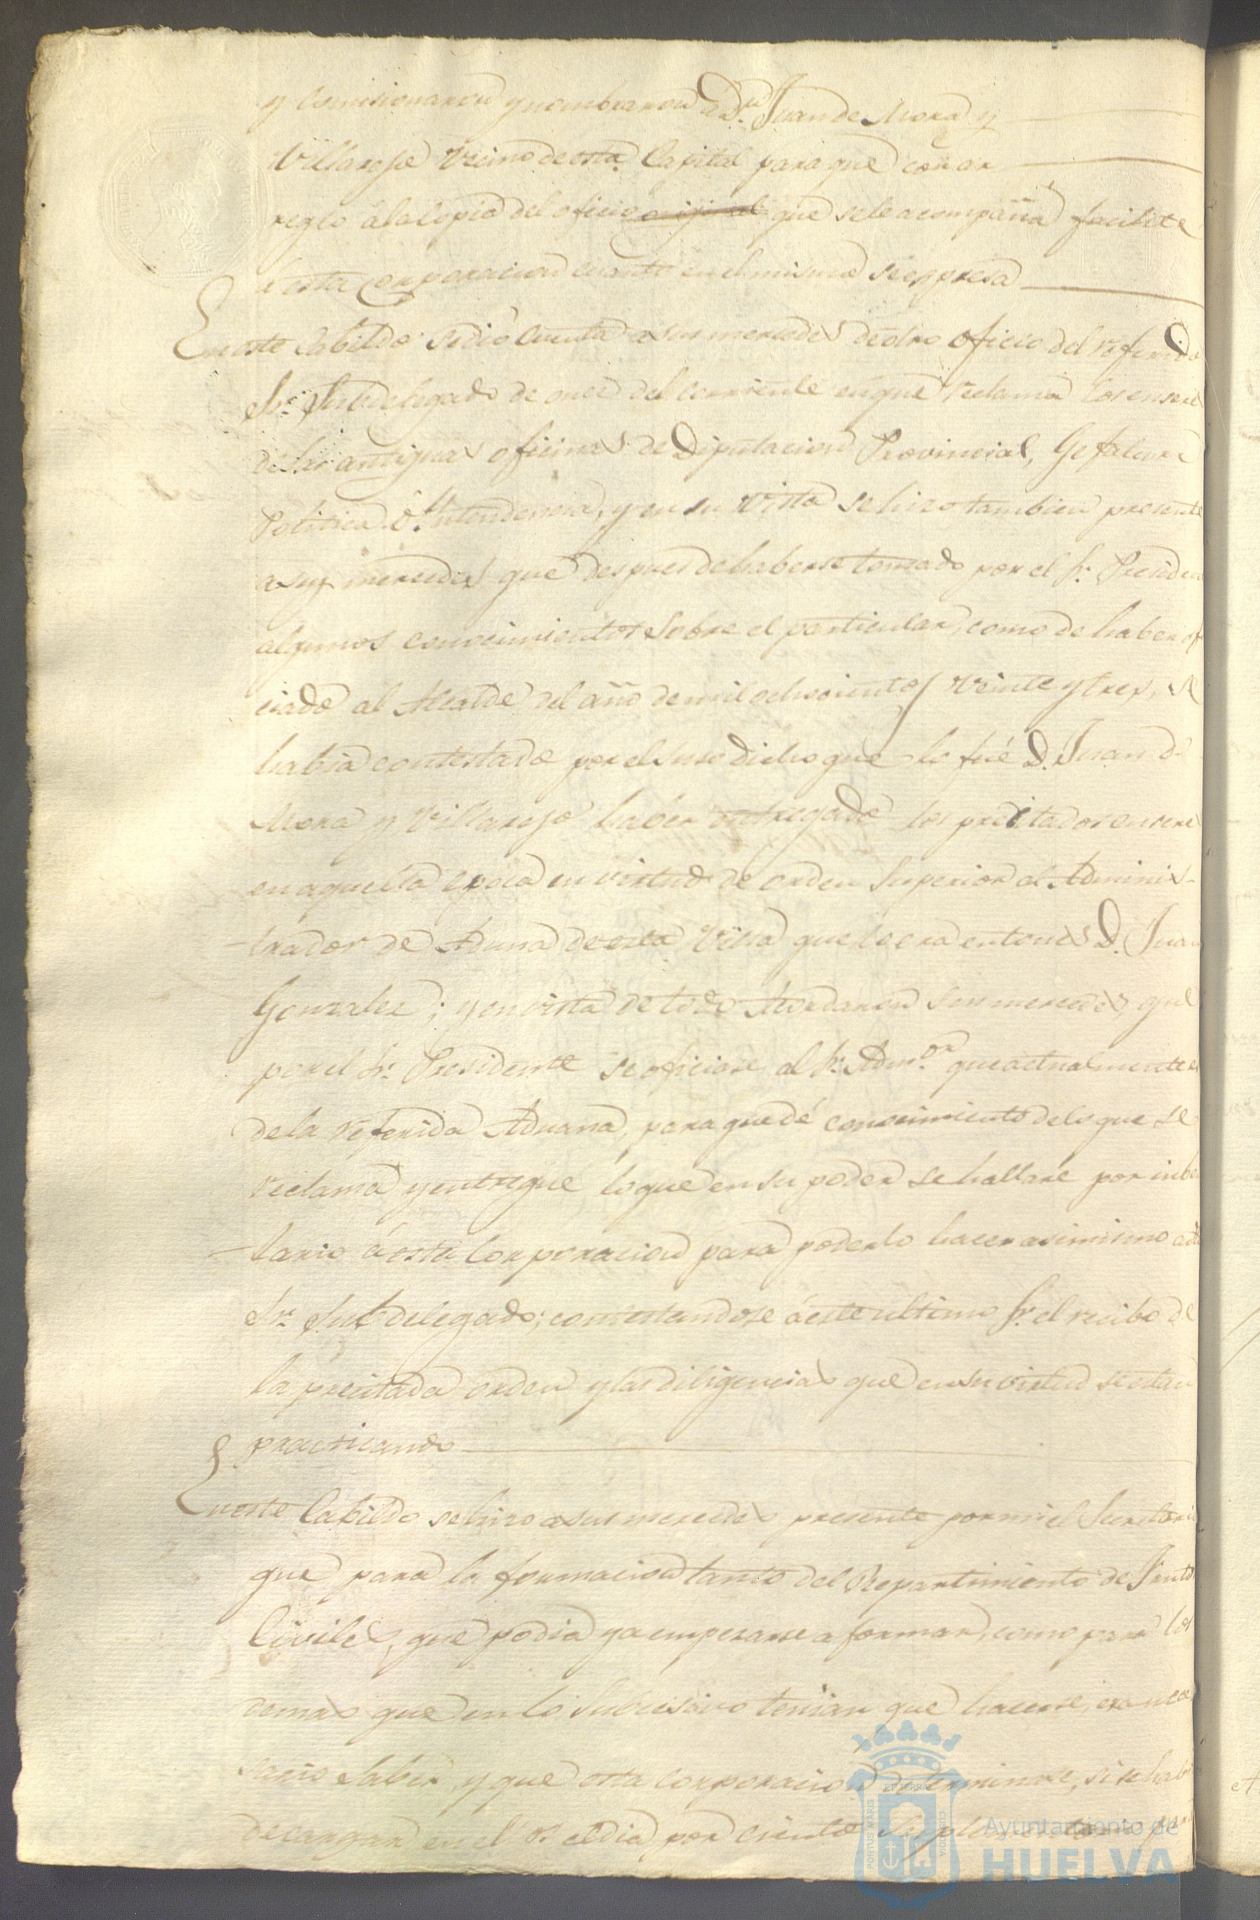 y comisionaron y nombraron a Dn. Juan de Mora y
Villarejo Vecino de esta Capital para que con ar
reglo á la Copia del oficio original que se le acompaña facilite
á esta Corporacion cuanto en el mismo se espresa
En este Cabildo se dió Cuenta a sus mercedes de otro oficio del referido
Sr. Subdelegado de once del corriente en que reclama los enseres
de las antiguas oficinas de Diputacion Provincial, Gefatura
Politica é Yntendencia, y en su vista se hizo tambien presente
a sus mercedes que despues de haberse tomado por el Sr. Presiden
algunos conocimientos sobre el particular, como de haber ofi
ciado al Alcalde del año de mil ochocientos veinte y tres, se
habia contestado por el suso dicho que lo fué D. Juan de
Mora y Villarejo haber entregado los precitados ensere
en aquella epoca en virtud de orden superior al Adminis-
trador de Aduana de esta Villa que lo era entonces D. Juan
Gonzalez; y en vista de todo Acordaron sus mercedes que
por el Sr. Presidente se oficiase al Sr. Admor. que actualmente es
de la referida Aduana, para que dé conocimiento de lo que se
reclama y entregue lo que en su poder se hallare por inben
tario á esta Corporacion para poderlo hacer asimismo a dho
Sr. Subdelegado; contestandose á este ultimo Sr. el recibo de
la precitada orden y las diligencias que en su virtud se estan
practicando
En este Cabildo se hizo a sus mercedes presente por mi el Secretario
que para la formacion tanto del Repartimiento de Frutos
Civiles, que podia ya empezarse a formar, como para los
demas que en lo subcesivo tenian que hacerse, era nece
sario saber, y que esta corporacion determinase, si se habia
de cargar en el dia por ciento
Ayuntamiento de
HUELVA